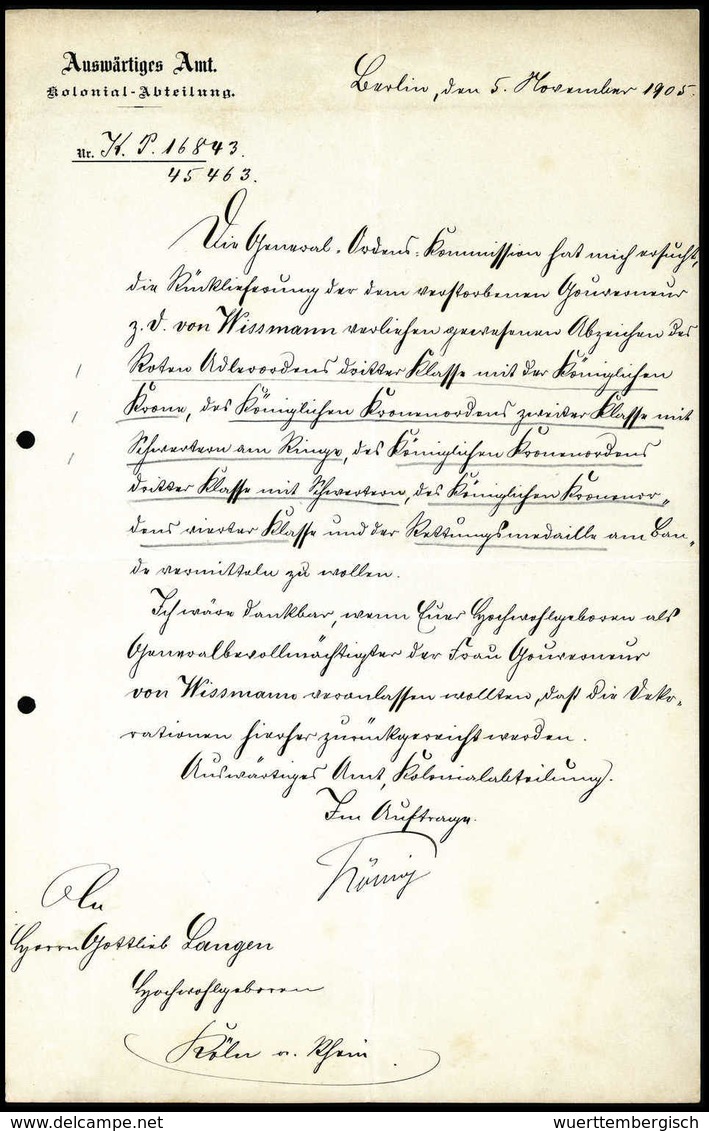 Auswärtiges Amt.
Kolonial-Abteilung.
Berlin, den 5. November 1905.
Nr. K. P. 16843.
45463.
Die General-Ordens-Kommission hat mich ersucht,
die Rücklieferung der dem verstorbenen Gouverneur
z. D. von Wissmann verliehen gewesenen Abzeichen des
Roten Adlerordens dritter Klasse mit der Königlichen
Krone, des Königlichen Kronenordens zweiter Klasse mit
Schwertern am Ringe, des Königlichen Kronenordens
dritter Klasse mit Schwertern, des Königlichen Kronenor-
dens vierter Klasse und der Rettungsmedaille am Ban-
de vermitteln zu wollen.
Ich wäre dankbar, wenn Euer Hochwohlgeboren als
Generalbevollmächtigter der Frau Gouverneur
von Wissmann veranlassen wollten, daß die Deko-
rationen hierher zurückgereicht werden.
Auswärtiges Amt, Kolonialabteilung.
Im Auftrage.
König
An
Herrn Gottlieb Langen
Hochwohlgeboren
Köln a. Rhein.
Delcampe.net
wuerttembergisch